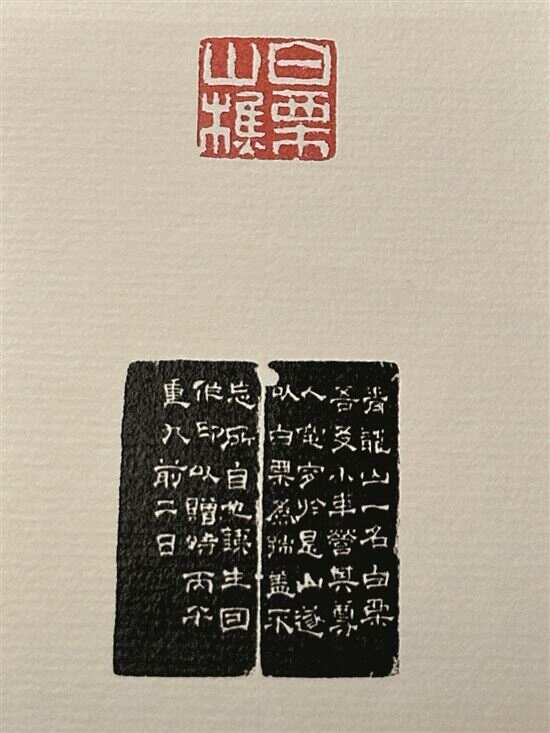 白栗
山樵
青龍山一名白栗
吾友小車營其尊
人窀穸於是山遂
以白栗爲號蓋不
忘所自也生因
作印以贈時丙
重九前二日